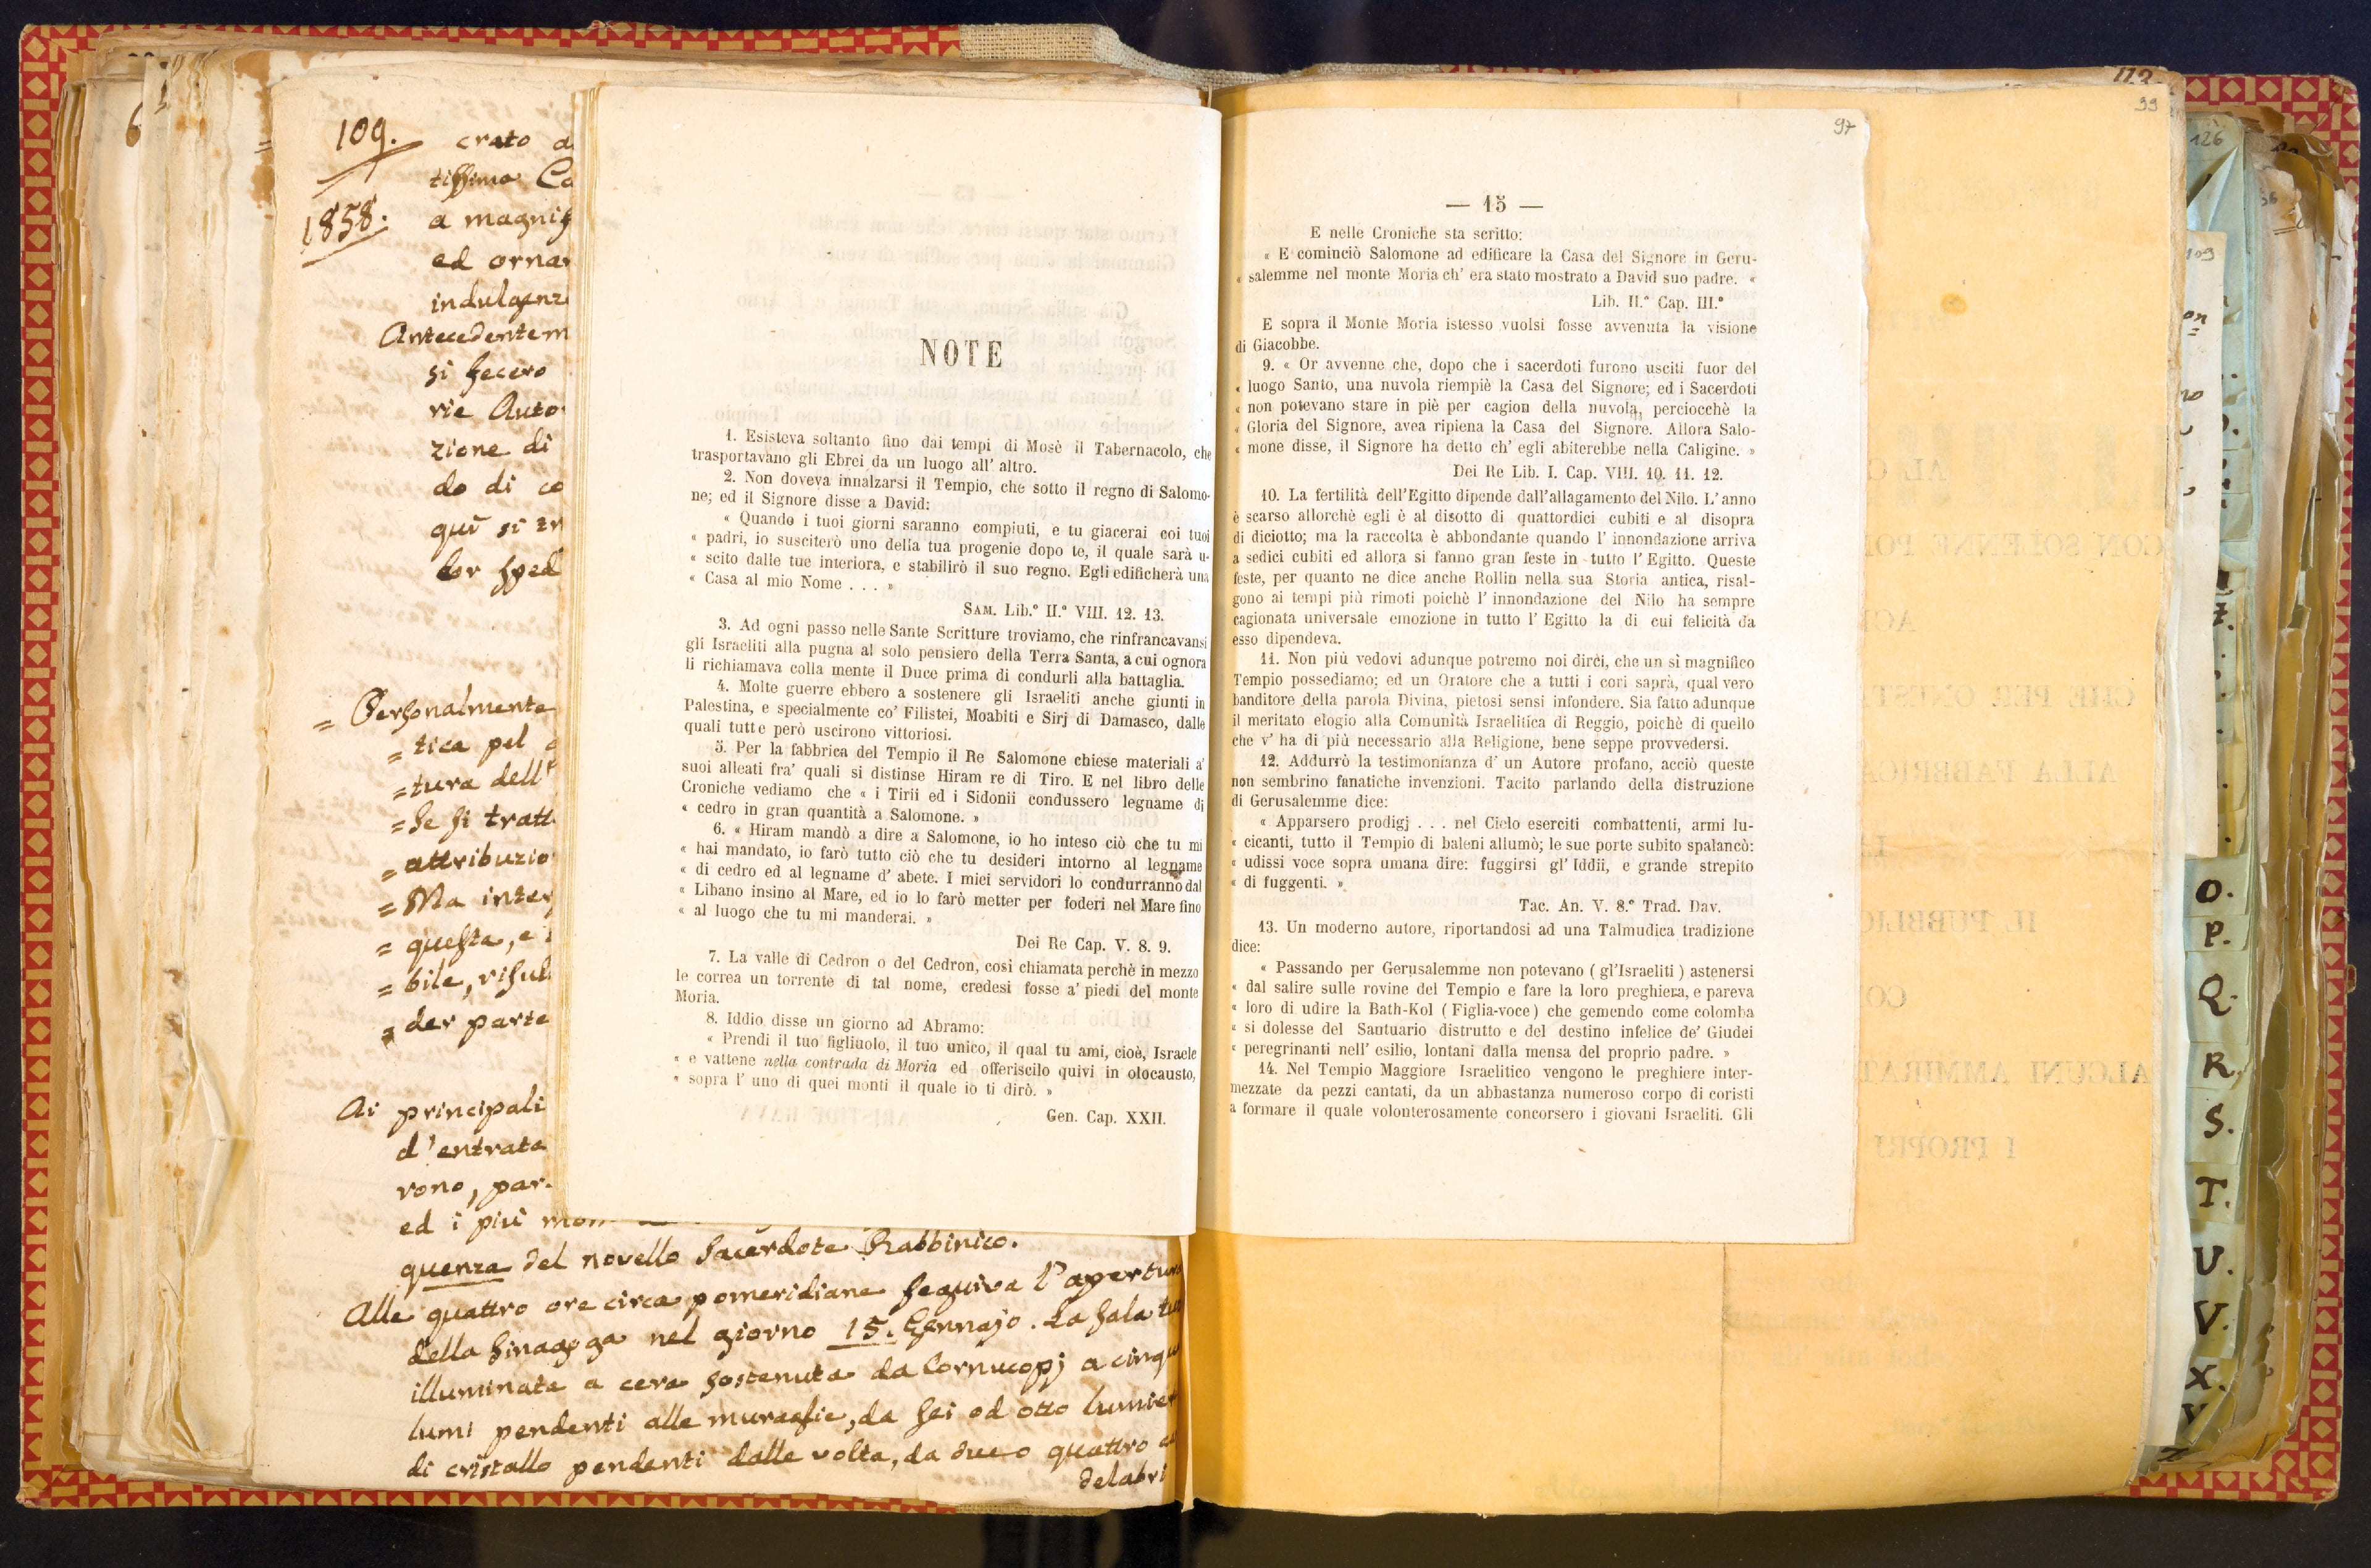 109.
1858.
crato
tissima
a magnif
ed orna
indulgenz
Antecedentem
si fecero
rie Auto
zione di
do di co
qui si
lor sped
= Personalmente
= tica pel
= tura dell'
= se si tratt
= attribuzio
= Ma inter
= questa, e
= bile, risul
= der parte
Ai principali
d'entrata
vono, par
ed i più
quenza del novello Sacerdote Rabbinico.
Alle quattro ore circa pomeridiane seguiva l'apertura
della Sinagoga nel giorno 15. Gennajo. La sala
illuminata a cera sostenuta da Cornucopj a cinque
lumi pendenti alle muraglie, da sei od otto lumier
di cristallo pendenti dalle volta, da due o quattro
delabri
NOTE
1. Esisteva soltanto fino dai tempi di Mosè il Tabernacolo, che
trasportavano gli Ebrei da un luogo all' altro.
2. Non doveva innalzarsi il Tempio, che sotto il regno di Salomo-
ne; ed il Signore disse a David:
« Quando i tuoi giorni saranno compiuti, e tu giacerai coi tuoi
« padri, io susciterò uno della tua progenie dopo te, il quale sarà u-
« scito dalle tue interiora, e stabilirò il suo regno. Egli edificherà una
« Casa al mio Nome . . . »
SAM. Lib.° II.° VIII. 12. 13.
3. Ad ogni passo nelle Sante Scritture troviamo, che rinfrancavansi
gli Israeliti alla pugna al solo pensiero della Terra Santa, a cui ognora
li richiamava colla mente il Duce prima di condurli alla battaglia.
4. Molte guerre ebbero a sostenere gli Israeliti anche giunti in
Palestina, e specialmente co' Filistei, Moabiti e Sirj di Damasco, dalle
quali tutte però uscirono vittoriosi.
5. Per la fabbrica del Tempio il Re Salomone chiese materiali a'
suoi alleati fra' quali si distinse Hiram re di Tiro. E nel libro delle
Croniche vediamo che « i Tirii ed i Sidonii condussero legname di
« cedro in gran quantità a Salomone. »
6. « Hiram mandò a dire a Salomone, io ho inteso ciò che tu mi
« hai mandato, io farò tutto ciò che tu desideri intorno al legname
« di cedro ed al legname d' abete. I miei servidori lo condurranno dal
« Libano insino al Mare, ed io lo farò metter per foderi nel Mare fino
« al luogo che tu mi manderai. »
Dei Re Cap. V. 8. 9.
7. La valle di Cedron o del Cedron, così chiamata perchè in mezzo
le correa un torrente di tal nome, credesi fosse a' piedi del monte
Moria.
8. Iddio disse un giorno ad Abramo:
« Prendi il tuo figliuolo, il tuo unico, il qual tu ami, cioè, Israele
« e vattene nella contrada di Moria ed offeriscilo quivi in olocausto,
« sopra l' uno di quei monti il quale io ti dirò. »
Gen. Cap. XXII.
97
— 15 —
E nelle Croniche sta scritto:
« E cominciò Salomone ad edificare la Casa del Signore in Geru-
« salemme nel monte Moria ch' era stato mostrato a David suo padre. «
Lib. II.° Cap. III.°
E sopra il Monte Moria istesso vuolsi fosse avvenuta la visione
di Giacobbe.
9. « Or avvenne che, dopo che i sacerdoti furono usciti fuor del
« luogo Santo, una nuvola riempiè la Casa del Signore; ed i Sacerdoti
« non potevano stare in piè per cagion della nuvola, perciocchè la
« Gloria del Signore, avea ripiena la Casa del Signore. Allora Salo-
« mone disse, il Signore ha detto ch' egli abiterebbe nella Caligine. »
Dei Re Lib. I. Cap. VIII. 10. 11. 12.
10. La fertilità dell'Egitto dipende dall'allagamento del Nilo. L'anno
è scarso allorchè egli è al disotto di quattordici cubiti e al disopra
di diciotto; ma la raccolta è abbondante quando l' innondazione arriva
a sedici cubiti ed allora si fanno gran feste in tutto l' Egitto. Queste
feste, per quanto ne dice anche Rollin nella sua Storia antica, risal-
gono ai tempi più rimoti poichè l' innondazione del Nilo ha sempre
cagionata universale emozione in tutto l' Egitto la di cui felicità da
esso dipendeva.
11. Non più vedovi adunque potremo noi dirci, che un sì magnifico
Tempio possediamo; ed un Oratore che a tutti i cori saprà, qual vero
banditore della parola Divina, pietosi sensi infondere. Sia fatto adunque
il meritato elogio alla Comunità Israelitica di Reggio, poichè di quello
che v' ha di più necessario alla Religione, bene seppe provvedersi.
12. Addurrò la testimonianza d' un Autore profano, acciò queste
non sembrino fanatiche invenzioni. Tacito parlando della distruzione
di Gerusalemme dice:
« Apparsero prodigj . . . nel Cielo eserciti combattenti, armi lu-
« cicanti, tutto il Tempio di baleni allumò; le sue porte subito spalancò:
« udissi voce sopra umana dire: fuggirsi gl' Iddii, e grande strepito
« di fuggenti. »
Tac. An. V. 8.° Trad. Dav.
13. Un moderno autore, riportandosi ad una Talmudica tradizione
dice:
« Passando per Gerusalemme non potevano ( gl'Israeliti ) astenersi
« dal salire sulle rovine del Tempio e fare la loro preghiera, e pareva
« loro di udire la Bath-Kol ( Figlia-voce ) che gemendo come colomba
« si dolesse del Santuario distrutto e del destino infelice de' Giudei
« peregrinanti nell' esilio, lontani dalla mensa del proprio padre. »
14. Nel Tempio Maggiore Israelitico vengono le preghiere inter-
mezzate da pezzi cantati, da un abbastanza numeroso corpo di coristi
a formare il quale volonterosamente concorsero i giovani Israeliti. Gli
113
99
126
109
O.
P.
Q.
R.
S.
T.
U.
V.
X.